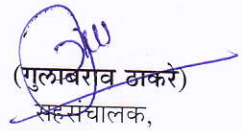 (गुलाबराव ठाकरे)
सहसंचालक,